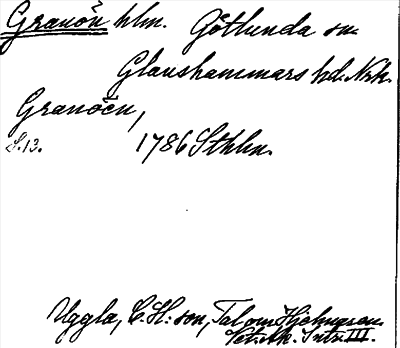 Granön hlm. Götlunda sn.
Glanshammars hd. Nrk.
Granöen,
S. 13. 1786 Sthlm.
Uggla, C. H:son, Tal om Hjelmaren.
Vet. Ak. Intr. III.